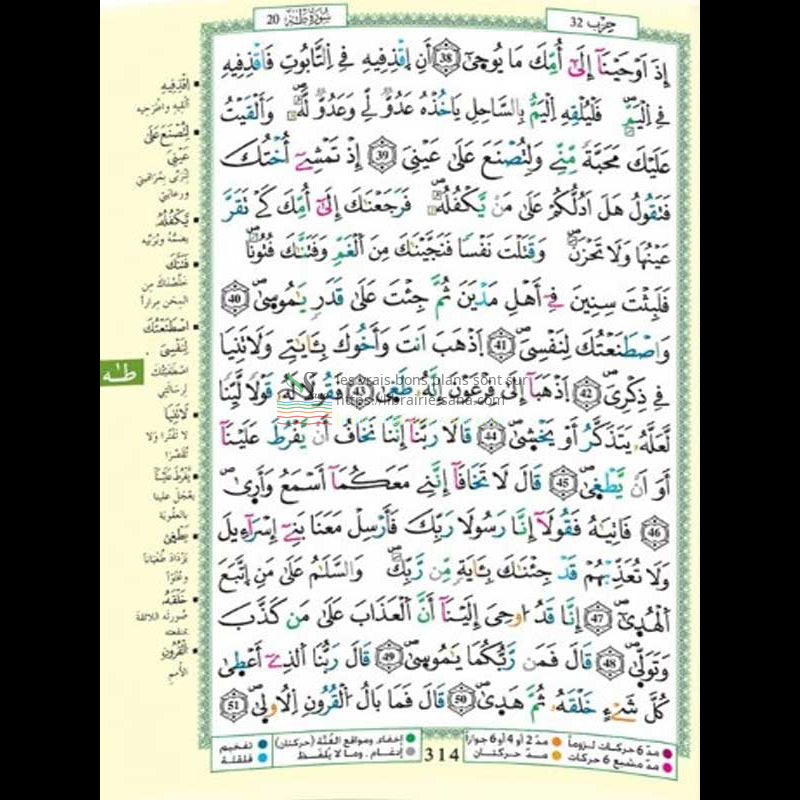 حزب 32
سورة طه 20
إِذَ اَوْحَيْنَآ إِلَىٰٓ أُمِّكَ مَا يُوحَىٰٓ ۝38 أَنِ اِقْذِفِيهِ فِے اِلتَّابُوتِ فَاقْذِفِيهِ
فِے اِلْيَمِّ ۖ فَلْيُلْقِهِ اِلْيَمُّ بِالسَّاحِلِ يَاخُذْهُ عَدُوٌّ لِّے وَعَدُوٌّ لَّهُۥ ۖ وَأَلْقَيْتُ
عَلَيْكَ مَحَبَّةً مِّنِّے وَلِتُصْنَعَ عَلَىٰ عَيْنِيَ ۝39 إِذْ تَمْشِےٓ أُخْتُكَ
فَتَقُولُ هَلَ اَدُلُّكُمْ عَلَىٰ مَنْ يَّكْفُلُهُۥ ۖ فَرَجَعْنَٰكَ إِلَىٰٓ أُمِّكَ كَےْ تَقَرَّ
عَيْنُهَا وَلَا تَحْزَنَ ۖ وَقَتَلْتَ نَفْسًا فَنَجَّيْنَٰكَ مِنَ اَلْغَمِّ وَفَتَنَّٰكَ فُتُونًا ۖ
فَلَبِثْتَ سِنِينَ فِےٓ أَهْلِ مَدْيَنَ ثُمَّ جِئْتَ عَلَىٰ قَدَرٍ يَٰمُوسَىٰ ۝40
وَاصْطَنَعْتُكَ لِنَفْسِيَ ۝41 اَذْهَبَ اَنتَ وَأَخُوكَ بِـَٔايَٰتِے وَلَا تَنِيَا
فِے ذِكْرِيَ ۝42 اَذْهَبَآ إِلَىٰ فِرْعَوْنَ إِنَّهُۥ طَغَىٰ ۝43 فَقُولَا لَهُۥ قَوْلًا لَّيِّنًا
لَّعَلَّهُۥ يَتَذَكَّرُ أَوْ يَخْشَىٰ ۝44 قَالَا رَبَّنَآ إِنَّنَا نَخَافُ أَنْ يَّفْرُطَ عَلَيْنَآ
أَوَ اَنْ يَّطْغَىٰ ۝45 قَالَ لَا تَخَافَآ إِنَّنِے مَعَكُمَآ أَسْمَعُ وَأَرَىٰ ۖ
۝46 فَاتِيَٰهُ فَقُولَآ إِنَّا رَسُولَا رَبِّكَ فَأَرْسِلْ مَعَنَا بَنِےٓ إِسْرَآءِيلَ
وَلَا تُعَذِّبْهُمْ قَدْ جِئْنَٰكَ بِـَٔايَةٍ مِّن رَّبِّكَ ۖ وَالسَّلَٰمُ عَلَىٰ مَنِ اِتَّبَعَ
اَلْهُدَىٰٓ ۝47 إِنَّا قَدُ ا۟وحِيَ إِلَيْنَآ أَنَّ اَلْعَذَابَ عَلَىٰ مَن كَذَّبَ
وَتَوَلَّىٰ ۝48 قَالَ فَمَن رَّبُّكُمَا يَٰمُوسَىٰ ۝49 قَالَ رَبُّنَا اَلذِےٓ أَعْطَىٰ
كُلَّ شَےْءٍ خَلْقَهُۥ ثُمَّ هَدَىٰ ۝50 قَالَ فَمَا بَالُ اُلْقُرُونِ اِلُاولَىٰ ۝51
اِقْذِفِيهِ
ألقيه واطرحيه
لِتُصْنَعَ عَلَىٰ
عَيْنِيَ
لتربى بمراقبتي
ورعايتي
يَكْفُلُهُ
يضمه ويربيه
فَتَنَّٰكَ
خلصناك من
المحن مرارا
اصْطَنَعْتُكَ
لِنَفْسِيَ
اصطفيتك
لرسالتي
لَا تَنِيَا
لا تفترا ولا
تقصرا
يَفْرُطَ عَلَيْنَا
يعجل علينا
بالعقوبة
يَطْغَىٰ
يزداد طغيانا
وعتوا
خَلْقَهُ
صورته اللائقة
بمنفعته
الْقُرُونِ
الأمم
طه
les vrais bons plans sont sur
https://librairie-sana.com
مدّ 6 حركات لزوماً
مدّ 2 أو 4 أو 6 جوازاً
إخفاء، ومواقع الغُنَّة (حركتان)
تفخيم
مدّ مشبع 6 حركات
مدّ حركتان
إدغام، وما لا يُلفظ
قلقلة
314